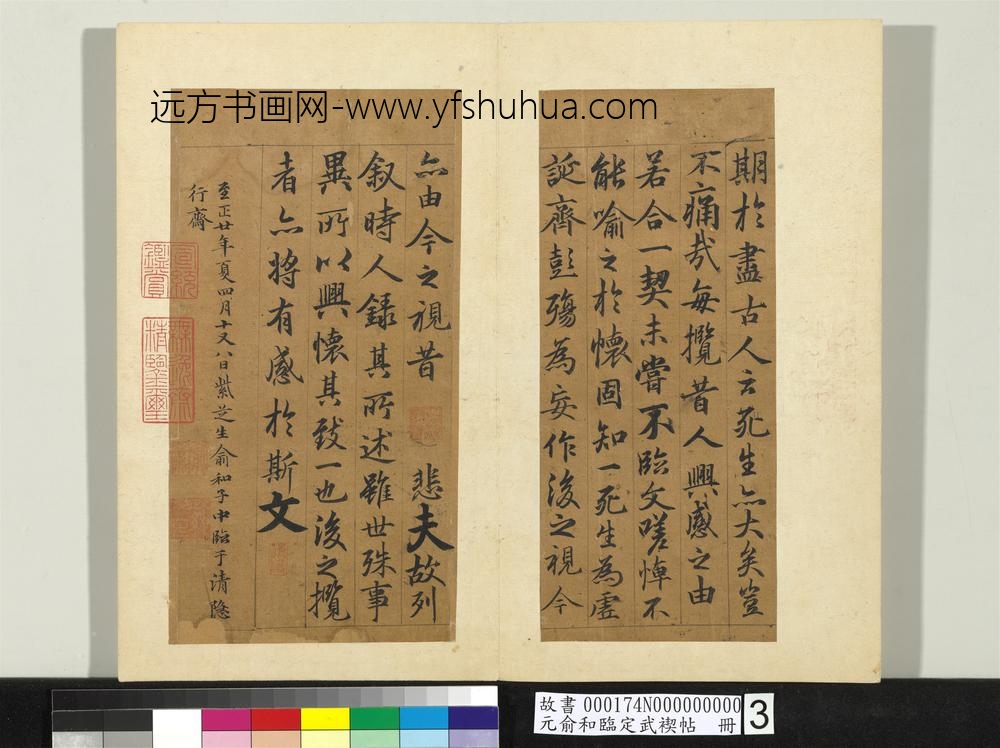 远方书画网-www.yfshuhua.com
期於盡古人云死生亦大矣豈
不痛哉每攬昔人興感之由
若合一契未嘗不臨文嗟悼不
能喻之於懷固知一死生為虛
誕齊彭殤為妄作後之視今
亦由今之視昔 悲夫故列
叙時人錄其所述雖世殊事
異所以興懷其致一也後之攬
者亦將有感於斯文
至正廿年夏四月十又八日紫芝生俞和子中臨于清隐
行齋
宣統
鑑賞
無逸齋
精鑒璽
故書 000174N000000000
元俞和臨定武禊帖 冊
3